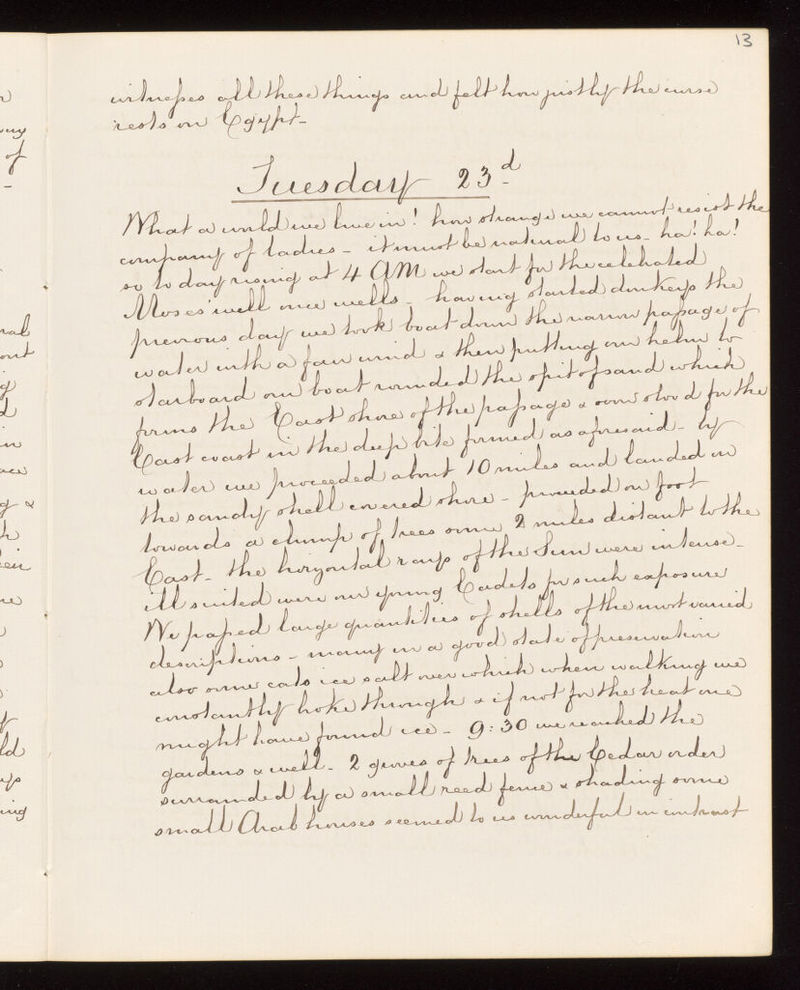 13
witnesses all these things and felt how justly the curse
rests on Egypt -
Tuesday 23d
What a world we live in! how strange we cannot resist the
company of ladies - it must be natural to us - ha! ha!
so to day rising at 4 AM we start for the celebrated
Moses' well once wells - having started donkeys the
previous day we took boat down the narrow passage of
water with a fair wind & then putting our helm to
starboard our boat rounded the spit of sand which
forms the East shore of the passage & soon stood for the
East coast in the deep bite formed as aforesaid - by
water we proceeded about 10 miles and landed on
the sandy shell covered shore - proceeded on foot
towards a clump of trees some 2 miles distant to the
East - the horizontal rays of the Sun were intense -
ill suited were our young Cadets for such exposure
We passed large quantities of shells of the most varied
descriptions - many in a good state of preservation
also some cats ice salt over which when walking we
constantly broke through & if not for the heat one
might have found ice - 9:30 we reached the
gardens & well - 2 groves of trees of the Cedar order
surrounded by a small reed fence & shading some
small Arab houses seemed to us wonderful in contrast
of
-
ral
out
g
d
in
ace
g &
h
eir
ne
ld
ing